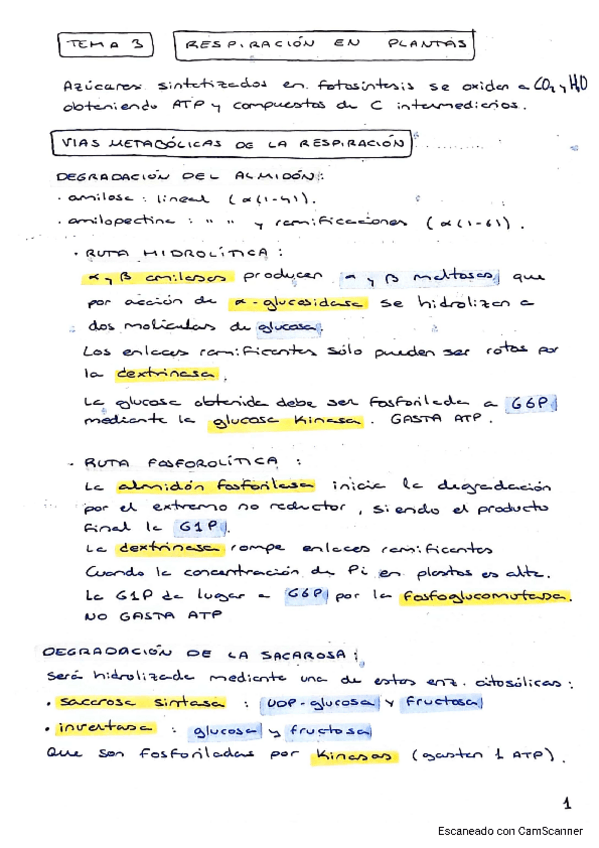 TEMA 3 RESPIRACIÓN EN PLANTAS
Azúcares sintetizados en fotosíntesis se oxidan a CO₂ y H₂O
obteniendo ATP y compuestos de C intermediarios.
VIAS METABÓLICAS DE LA RESPIRACIÓN
DEGRADACIÓN DEL ALMIDÓN:
· amilosa: lineal (α(1-4)).
· amilopectina: " " y ramificaciones (α(1-6)).
· RUTA HIDROLÍTICA:
α y β amilasas producen α y β maltosas, que
por acción de α-glucosidasa se hidrolizan a
dos moléculas de glucosa.
Los enlaces ramificantes sólo pueden ser rotos por
la dextrinasa.
La glucosa obtenida debe ser fosforilada a G6P
mediante la glucosa kinasa. GASTA ATP.
· RUTA FOSFOROLÍTICA:
La almidón fosforilasa inicia la degradación
por el extremo no reductor, siendo el producto
final la G1P.
La dextrinasa rompe enlaces ramificantes
Cuando la concentración de Pi en plastos es alta.
La G1P da lugar a G6P por la fosfoglucomutasa.
NO GASTA ATP
DEGRADACIÓN DE LA SACAROSA:
Será hidrolizada mediante una de estos enz. citosólicas:
· sacarosa sintasa: UDP-glucosa y fructosa
· invertasa: glucosa y fructosa
Que son fosforiladas por kinasas (gastan 1 ATP).
1
Escaneado con CamScanner